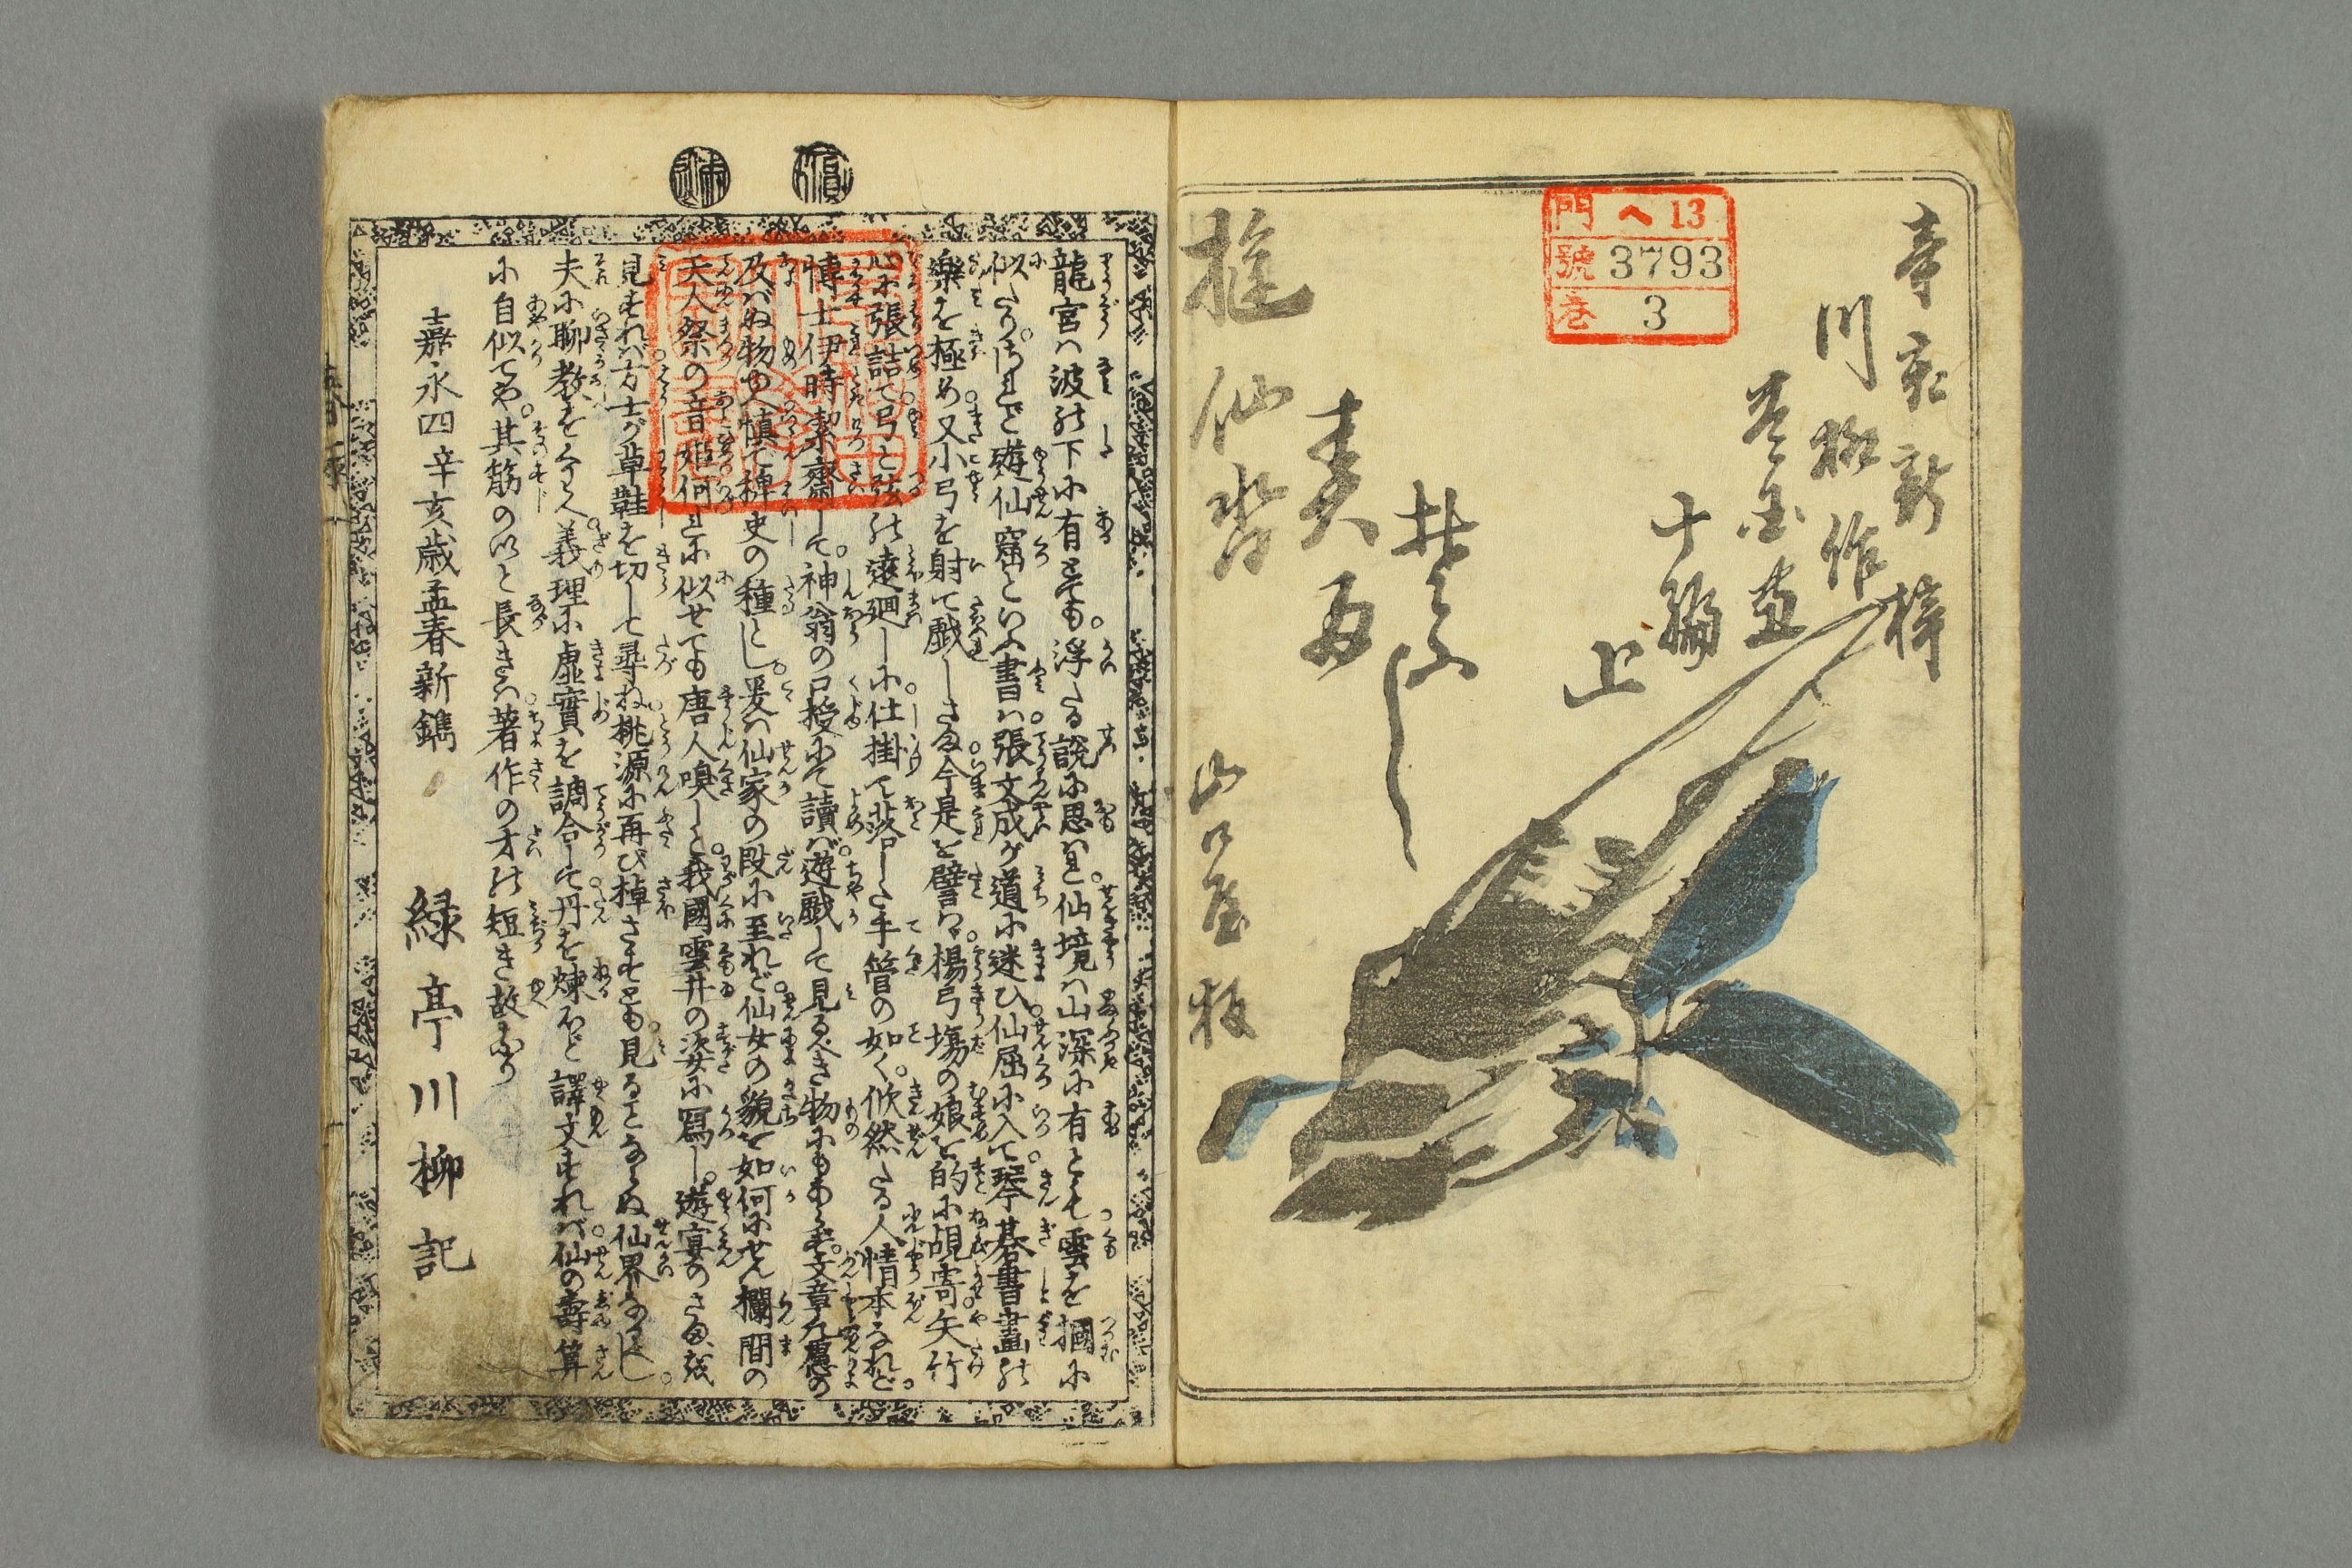 辛亥新梓
川柳作
国画
十編
上
遊仙沓
春雨
草し
山口屋板
門 ヘ13
號 3793
巻 3
龍宮ハ波の下に有とても。浮たる説に思はれ。仙境ハ山深に有とても雲を摑に
似たり。されど遊仙窟といふ書ハ張文成が道に迷ひ。仙窟に入て。琴碁書畫の
樂を極め。又小弓を射て戯しさま。今是を譬はゞ。楊弓塲の娘を的に覘寄。矢竹
心に張詰て。弓と弦の遠廻しに。仕掛て落した手管の如く。欣然たる人情本なれど。
博士伊時潔齋して。神翁の口授にて讀ば。遊戯して見るべき物にもあらず。文章九慮の
及ばぬ物ゆゑ慎で稗史の種とし。爰ハ仙家の段に至れど。仙女の貌を如何にせん欄間の
天人祭の音姫何れに似せても唐人嗅しと。我國雲井の姿に寫し。遊宴のさま戯
見すれバ方士が草鞋を切して尋ね。桃源に再び棹さすとも。見ることならぬ仙界なるべし。
夫に聊教をくはへ。義理に虚實を調合して。丹を煉ほど譯文すれバ。仙の壽算
に自似てや。其筋のいと長きハ。著作の才の短き故なり
嘉永四辛亥歳孟春新鐫
緑亭川柳記